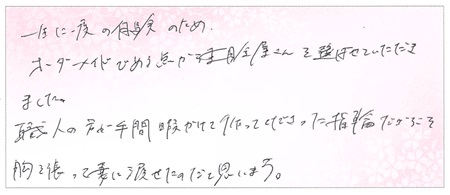 一生に一度の経験のため、
オーダーメイドである点から屋さんを選ばせていただき
ました。
職人の方が手間暇かけて作ってくださった指輪だからこそ
胸を張って妻に渡せたのだと思います。